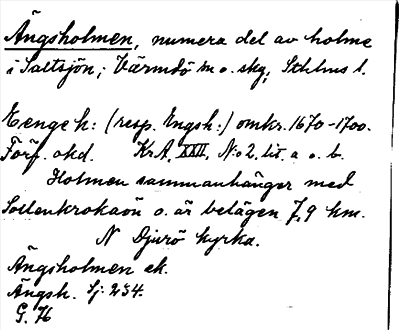 Ängsholmen, numera del av holme
i Saltsjön; Värmdö sn o. skg, Sthlms l.
Eengeh: (resp. Engsh:) omkr. 1670-1700.
Förf. okd. KrA XXII, N:o 2, lit. a o. b.
Holmen sammanhänger med
Sollenkrokaön o. är belägen 7,9 km.
N Djurö kyrka.
Ängsholmen ek.
Ängsh. Sj: 254.
G. H